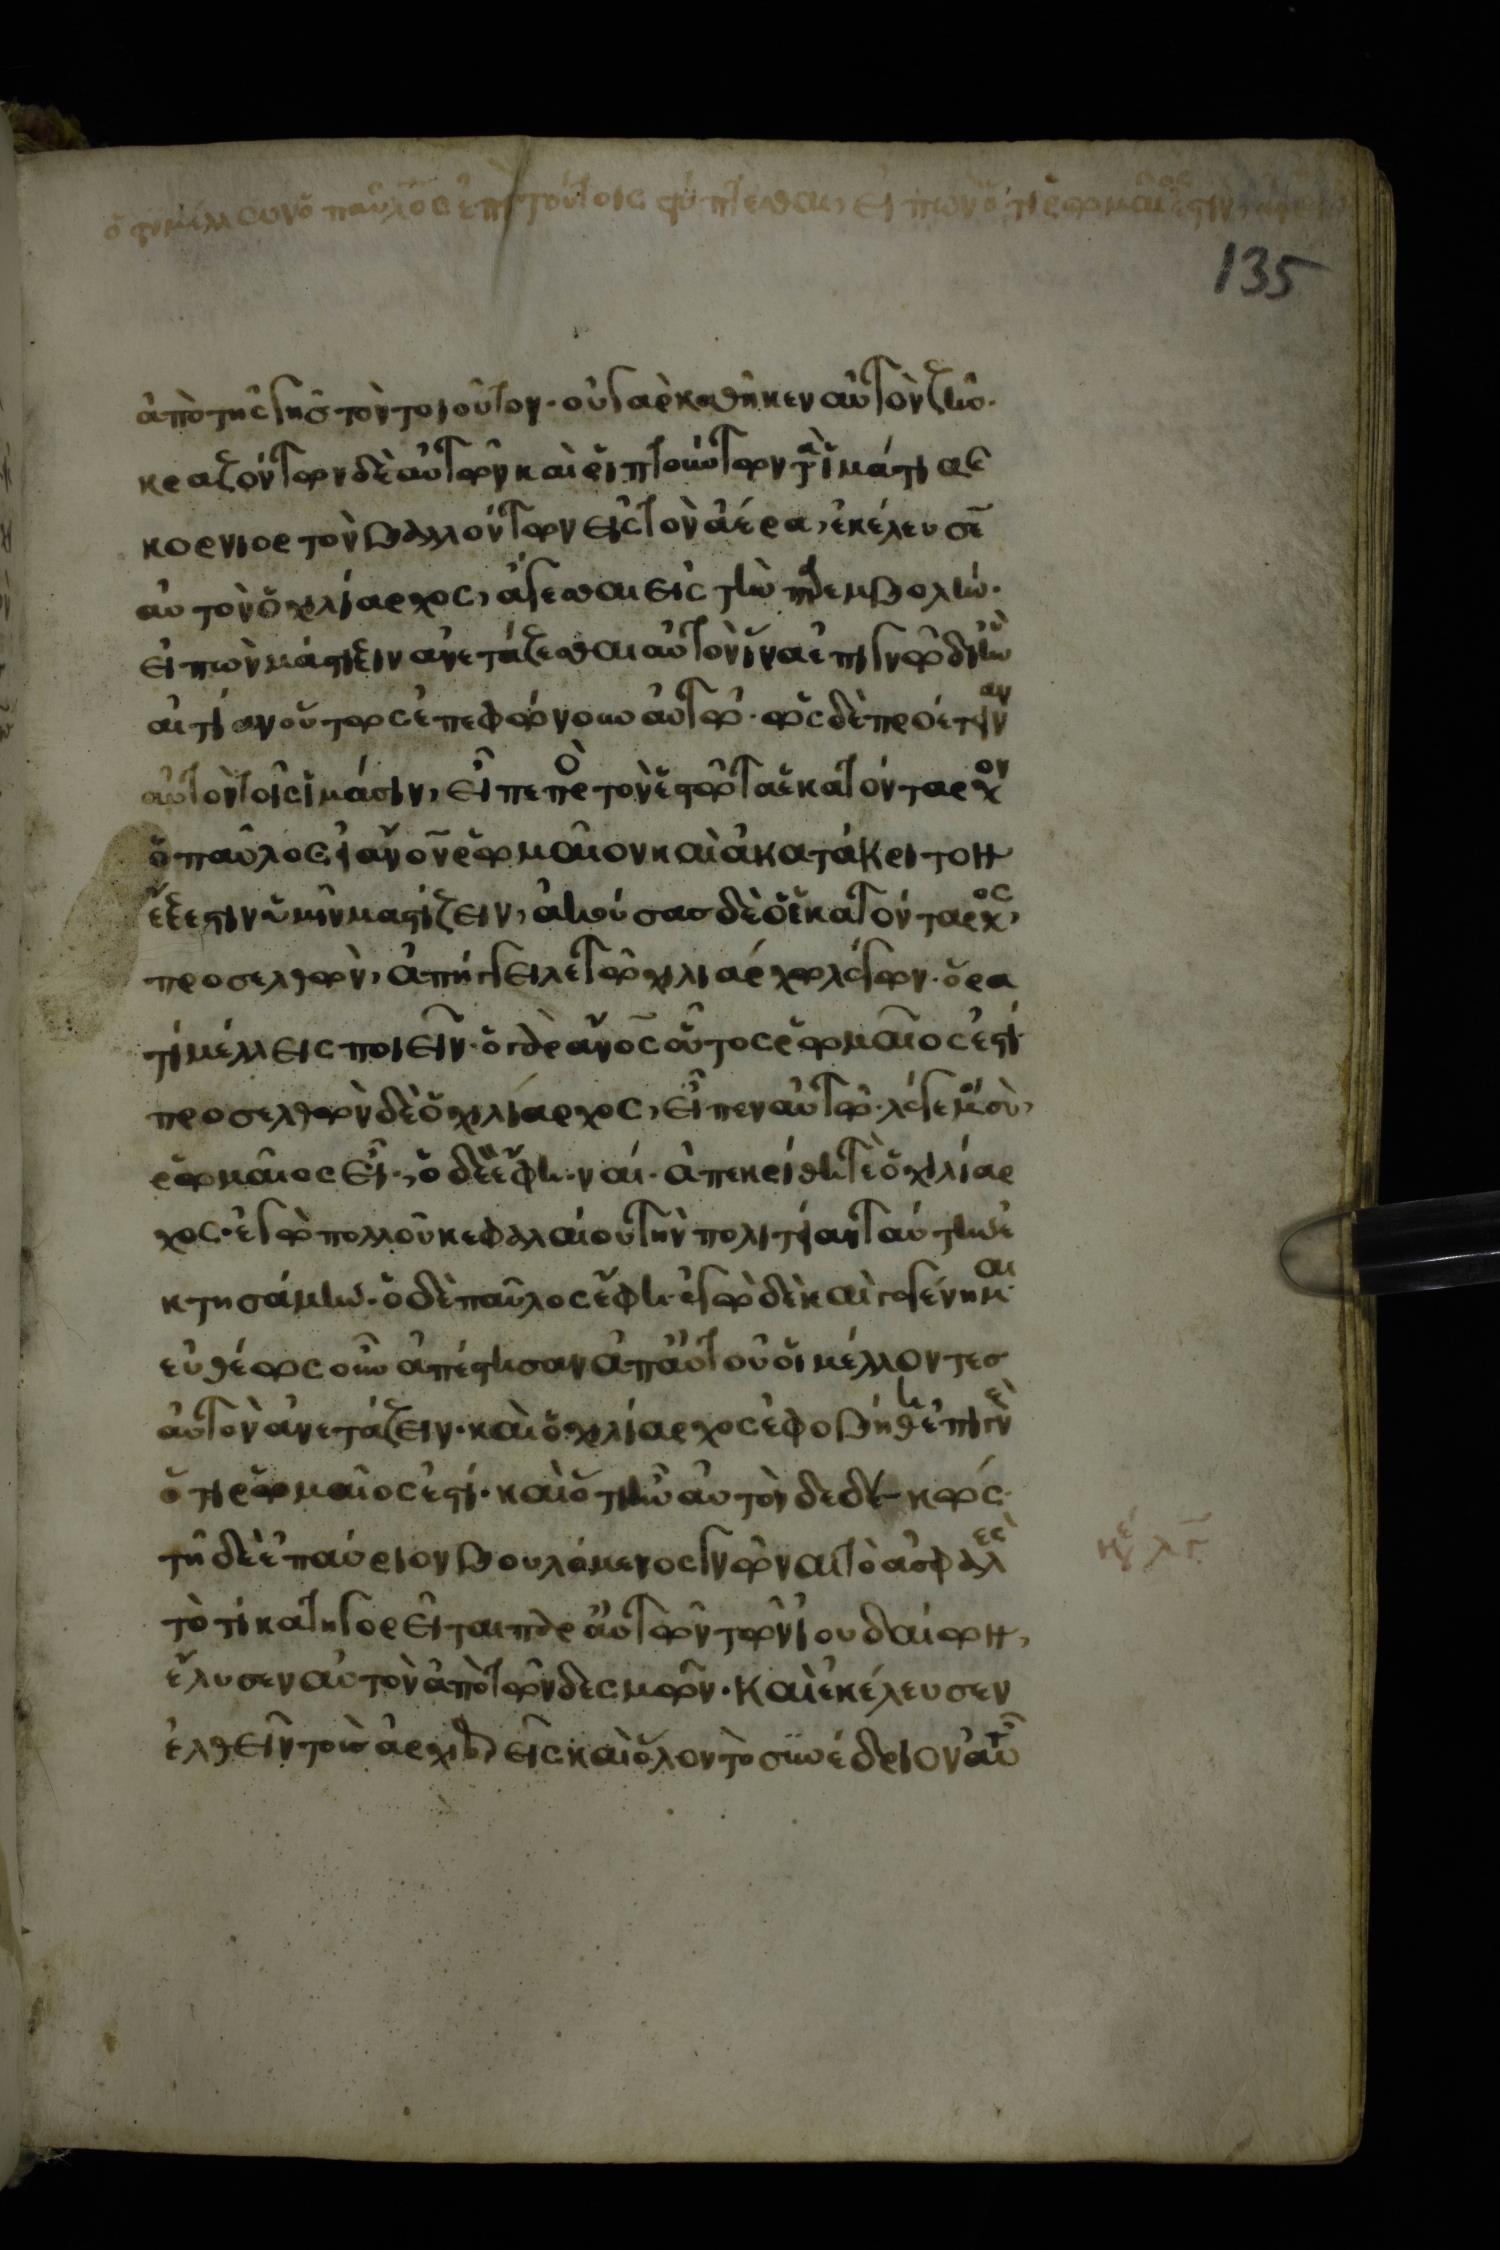 ὅτι μέλλων ὁ παῦλος ἐπὶ τούτοις τύπτεσθαι, εἰπὼν ὅτι ῥωμαῖος ἐστὶν,
135
ἀπὸ τῆς γῆς τὸν τοιοῦτον· οὐ γὰρ καθῆκεν αὐτὸν ζῆν·
κραζόντων δὲ αὐτῶν καὶ ῥιπτούντων τὰ ἱμάτια ϗ
κονιορτὸν βαλλόντων εἰς τὸν ἀέρα, ἐκέλευσε
αὐτὸν ὁ χιλίαρχος, ἄγεσθαι εἰς τὴν παρεμβολήν·
εἰπὼν μάστιξιν ἀνετάζεσθαι αὐτὸν ἵνα ἐπιγνῶ δι ἣν
αἰτίαν οὕτως ἐπεφώνουν αὐτῶ· ὡς δὲ προέτειναν
αὐτὸν τοῖς ἱμᾶσιν, εἶπε πρὸς τὸν ἑστῶτα ἑκατόνταρχον
ὁ παῦλος εἰ ἄνον ῥωμαῖον καὶ ἀκατάκριτον
ἔξεστιν ὑμῖν μαστίζειν, ἀκούσας δὲ ὁ ἑκατόνταρχος,
προσελθὼν, ἀπήγγειλε τῶ χιλιάρχω λέγων· ὅρα
τί μέλλεις ποιεῖν· ὁ γὰρ ἄνος οὗτος ῥωμαῖος ἐστι·
προσελθὼν δὲ ὁ χιλίαρχος, εἶπεν αὐτῶ· λέγε μοι σὺ,
ῥωμαῖος εἶ·, ὁ δὲ ἔφη· ναί· ἀπεκρίθη τὲ ὁ χιλίαρ
χος· ἐγὼ πολλοῦ κεφαλαίου τὴν πολιτίαν ταύτην ἐ
κτησάμην· ὁ δὲ παῦλος ἔφη· ἐγὼ δὲ καὶ γεγένημαι·
εὐθέως οὖν ἀπέστησαν ἀπ αὐτοῦ οἱ μέλλοντες
αὐτὸν ἀνετάζειν· καὶ ὁ χιλίαρχος ἐφοβήθη ἐπιγν
ὅτι ῥωμαῖος ἐστι· καὶ ὅτι ἦν αὐτὸν δεδεκώς·
τῆ δὲ ἐπαύριον βουλόμενος γνῶναι τὸ ἀσφαλὲς
τὸ τί κατηγορεῖται παρ αὐτῶν τῶν ἰουδαίων,
ἔλυσεν αὐτὸν ἀπὸ τῶν δεσμῶν· καὶ ἐκέλευσεν
ἐλθεῖν τοὺς ἀρχιερεῖς καὶ ὅλον τὸ συνέδριον αὐτ